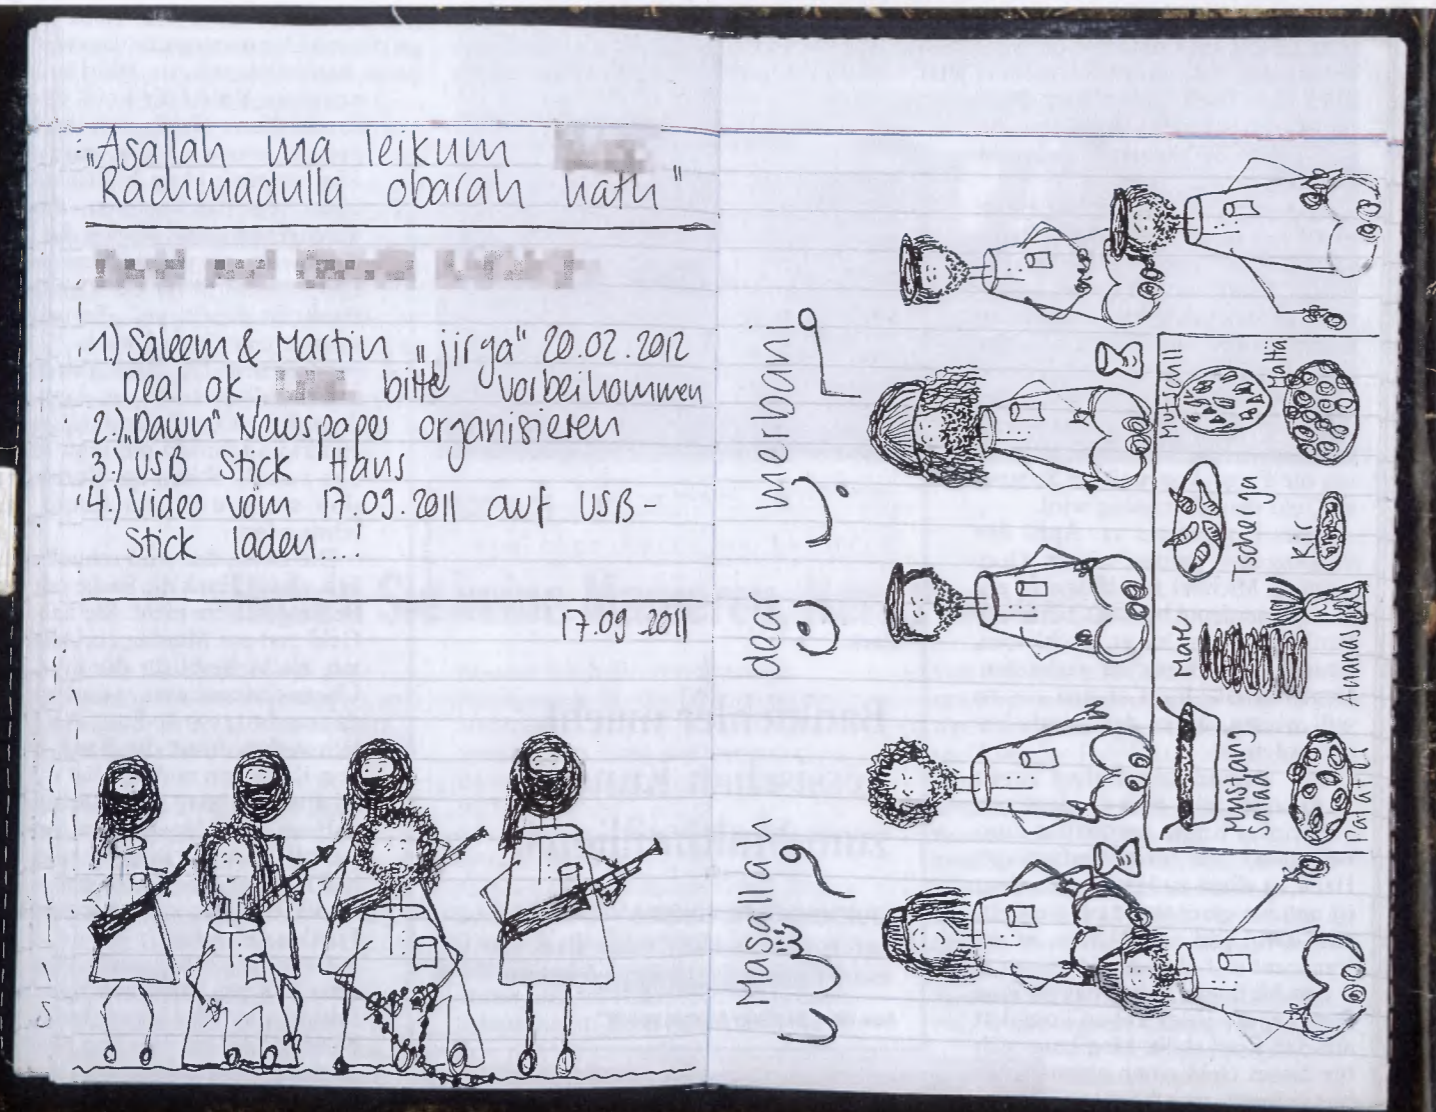 „Asallah ma leikum
Rachmadulla obarah hath"
1) Saleem & Martin „jirga" 20.02.2012
Deal ok, bitte vorbeikommen
2.) „Dawn" Newspaper organisieren
3.) USB Stick
4.) Video vom 17.09.2011 auf USB-
Stick laden...!
17.09.2011
Masallah dear merbani
Mustang
Salad
Marc
Tschega
Ananas
Kir